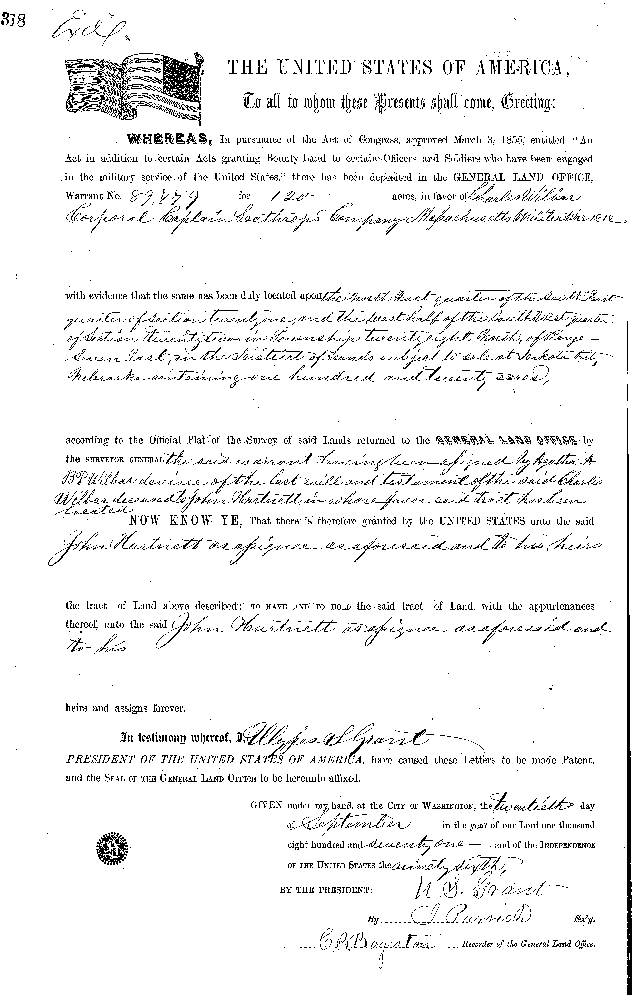 318
THE UNITED STATES OF AMERICA,
To all to whom these Presents shall come, Greeting:
WHEREAS, In pursuance of the Act of Congress, approved March 3, 1855, entitled "An
Act in addition to certain Acts granting Bounty Land to certain Officers and Soldiers who have been engaged
in the military service of the United States," there has been deposited in the GENERAL LAND OFFICE,
Warrant No. for 120 acres, in favor of Charles Wilbar
Corporal Captain Company Massachusetts Militia War 1812
with evidence that the same has been duly located upon the West quarter of the
quarter of Section twenty one, and the West half of the South West quarter
of Section twenty two in Township twenty eight North, of Range
Seven East, in the District of Lands subject to sale at Dakota City,
Nebraska containing one hundred and twenty acres,
according to the Official Plat of the Survey of said Lands returned to the GENERAL LAND OFFICE by
the SURVEYOR GENERAL the said warrant having been assigned by
Wilbar devisee of the last will and testament of the said Charles
Wilbar deceased to John Hartnett in whose favor said tract has been
located
NOW KNOW YE, That there is therefore granted by the UNITED STATES unto the said
John Hartnett as assignee as aforesaid and to his heirs
the tract of Land above described: TO HAVE AND TO HOLD the said tract of Land, with the appurtenances
thereof, unto the said John Hartnett as assignee as aforesaid and
to his
heirs and assigns forever.
In testimony whereof, I, Ulysses S Grant
PRESIDENT OF THE UNITED STATES OF AMERICA, have caused these Letters to be made Patent,
and the SEAL OF THE GENERAL LAND OFFICE to be hereunto affixed.
GIVEN under my hand, at the CITY OF WASHINGTON, the twentieth day
of September in the year of our Lord one thousand
eight hundred and seventy one and of the INDEPENDENCE
OF THE UNITED STATES the ninety sixth,
BY THE PRESIDENT: U. S. Grant
By Parrish Secy.
Recorder of the General Land Office.